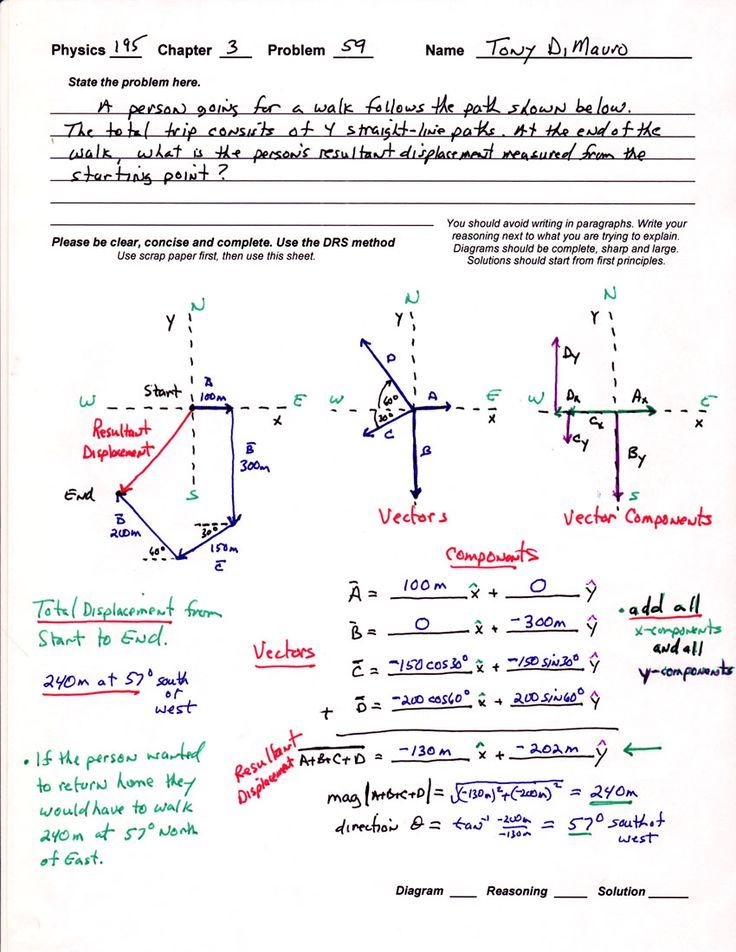 Physics 195 Chapter 3 Problem 59 Name Tony DiMauro
State the problem here.
A person going for a walk follows the path shown below.
The total trip consists of 4 straight-line paths. At the end of the
walk, what is the person's resultant displacement measured from the
starting point?
You should avoid writing in paragraphs. Write your
reasoning next to what you are trying to explain.
Diagrams should be complete, sharp and large.
Solutions should start from first principles.
Please be clear, concise and complete. Use the DRS method
Use scrap paper first, then use this sheet.
N
Y
Start
A
100m
W
E
x
Resultant
Displacement
B
300m
End
S
B
200m
30°
60°
150m
C
N
Y
D
W
60°
30°
A
E
x
C
B
Vectors
N
Y
Dy
W
Dx
Ax
E
x
Cx
Cy
By
S
Vector Components
Components
Vectors
A = 100m x̂ + 0 ŷ
B = 0 x̂ + -300m ŷ
C = -150 cos30° x̂ + -150 sin30° ŷ
+ D = -200 cos60° x̂ + 200 sin60° ŷ
Resultant
Displacement
A+B+C+D = -130m x̂ + -202m ŷ ←
mag |A+B+C+D| = √(-130m)²+(-200m)² = 240m
direction θ = tan⁻¹ -200m/-130m = 57° south of
west
• add all
x-components
and all
y-components
Total Displacement from
Start to End.
240m at 57° south
of
west
• If the person wanted
to return home they
would have to walk
240m at 57° North
of East.
Diagram ___ Reasoning ___ Solution ___